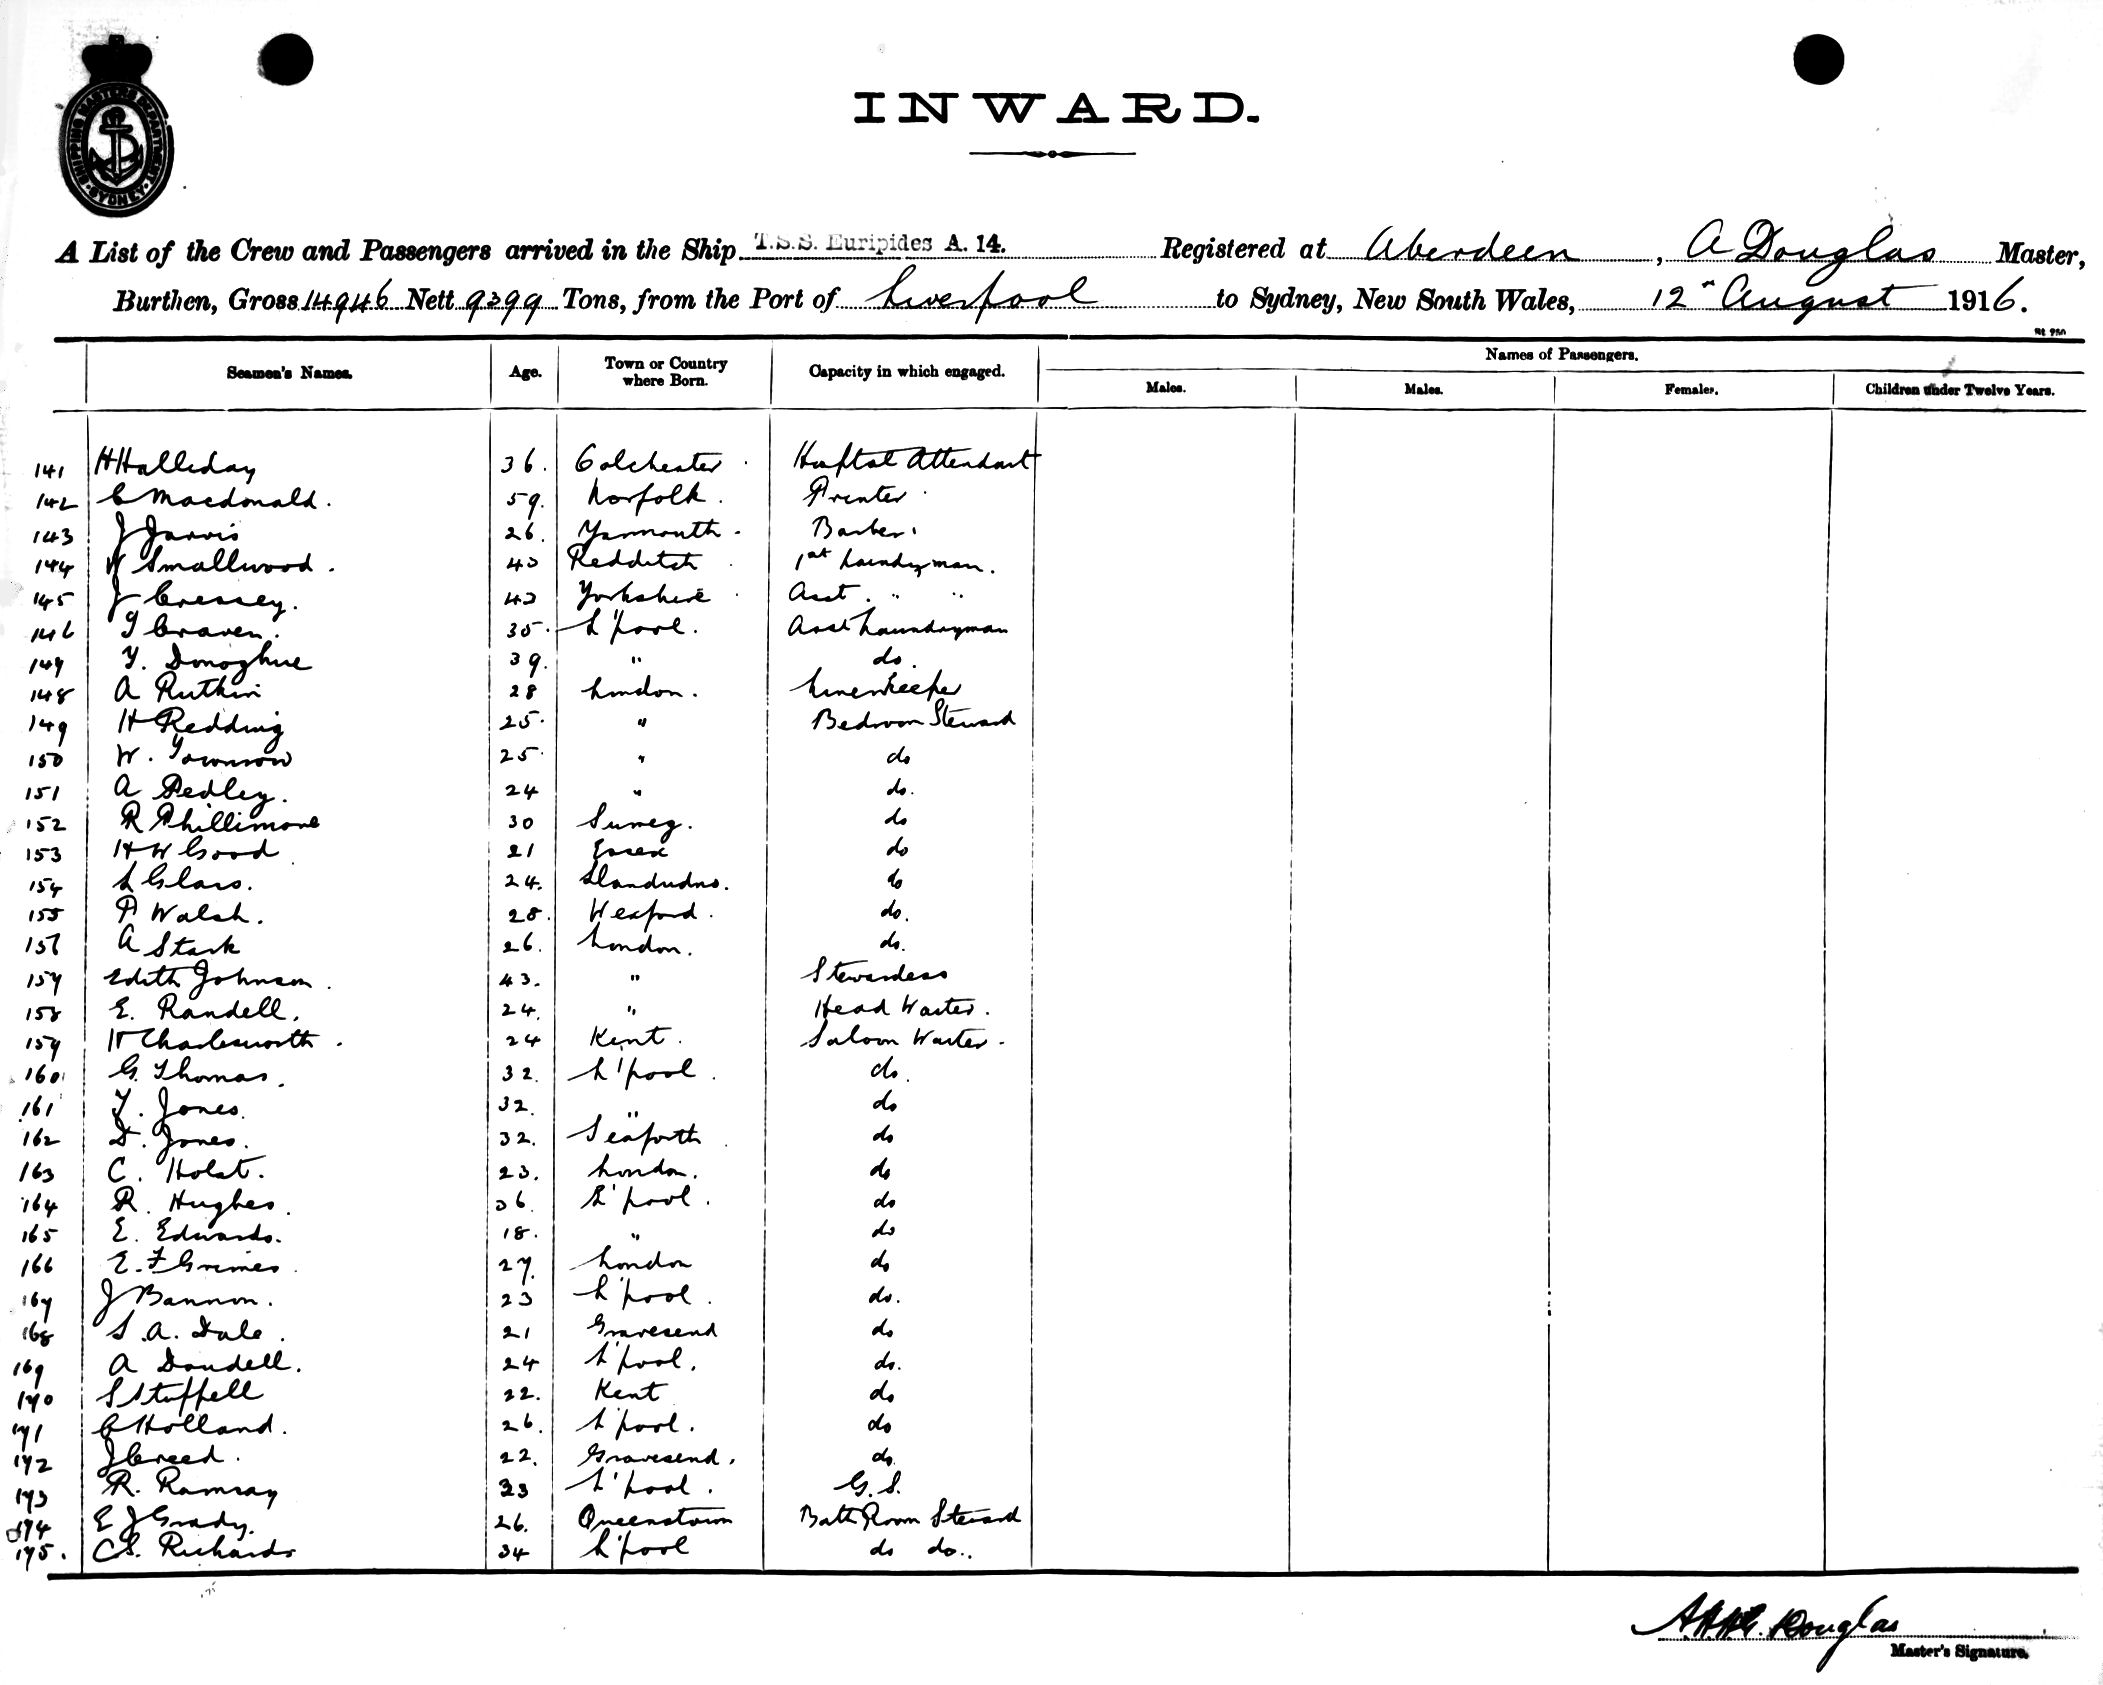 SHIPPING MASTERS DEPARTMENT · SYDNEY ·
INWARD.
A List of the Crew and Passengers arrived in the Ship T.S.S. Euripides A. 14. Registered at Aberdeen, A Douglas Master,
Burthen, Gross 14946 Nett 9399 Tons, from the Port of Liverpool to Sydney, New South Wales, 12" August 1916.
Names of Passengers.
Seamen's Names. Age. Town or Country where Born. Capacity in which engaged. Males. Males. Females. Children under Twelve Years.
141 H Halliday 36. Colchester. Hosptal Attendant
142 C Macdonald. 59. Norfolk. Printer.
143 J Jarvis 26. Yarmouth. Barber.
144 W Smallwood. 43 Redditch. 1st Laundryman.
145 J Cressey. 43 Yorkshire. Asst. " "
146 Craven. 35. L'pool. Asst Laundryman
147 Donoghue 39. " do.
148 A Rutkin 28 London. Linenkeeper
149 H Redding 25. " Bedroom Steward
150 W. Townrow 25. " do
151 A Pedley. 24 " do.
152 R Phillimore 30 Surrey. do
153 H W Good 21 Essex do
154 L Glass. 24. Llandudno. do
155 P Walsh. 28. Wexford. do.
156 A Stark 26. London. do.
157 Edith Johnson. 43. " Stewardess
158 E. Randell. 24. " Head Waiter.
159 H Charlesworth. 24 Kent. Saloon Waiter.
160 G. Thomas. 32. L'pool. do.
161 T. Jones. 32. " do
162 D. Jones. 32. Seaforth. do
163 C. Holst. 23. London. do
164 R. Hughes. 36. L'pool. do
165 E. Edwards. 18. " do
166 E. F Grimes. 27. London do
167 J Bannon. 23 L'pool. do.
168 S. A. Dale. 21 Gravesend do
169 A Dowdell. 24 L'pool. do.
170 S Stuppell 22. Kent do
171 C Holland. 26. L'pool. do
172 J Creed. 22. Gravesend. do.
173 R. Ramsay 33 L'pool. G. S.
174 E J Grady. 26. Queenstown Bath Room Steward
175. C S. Richards 34 L'pool do do..
Douglas
Master's Signature.